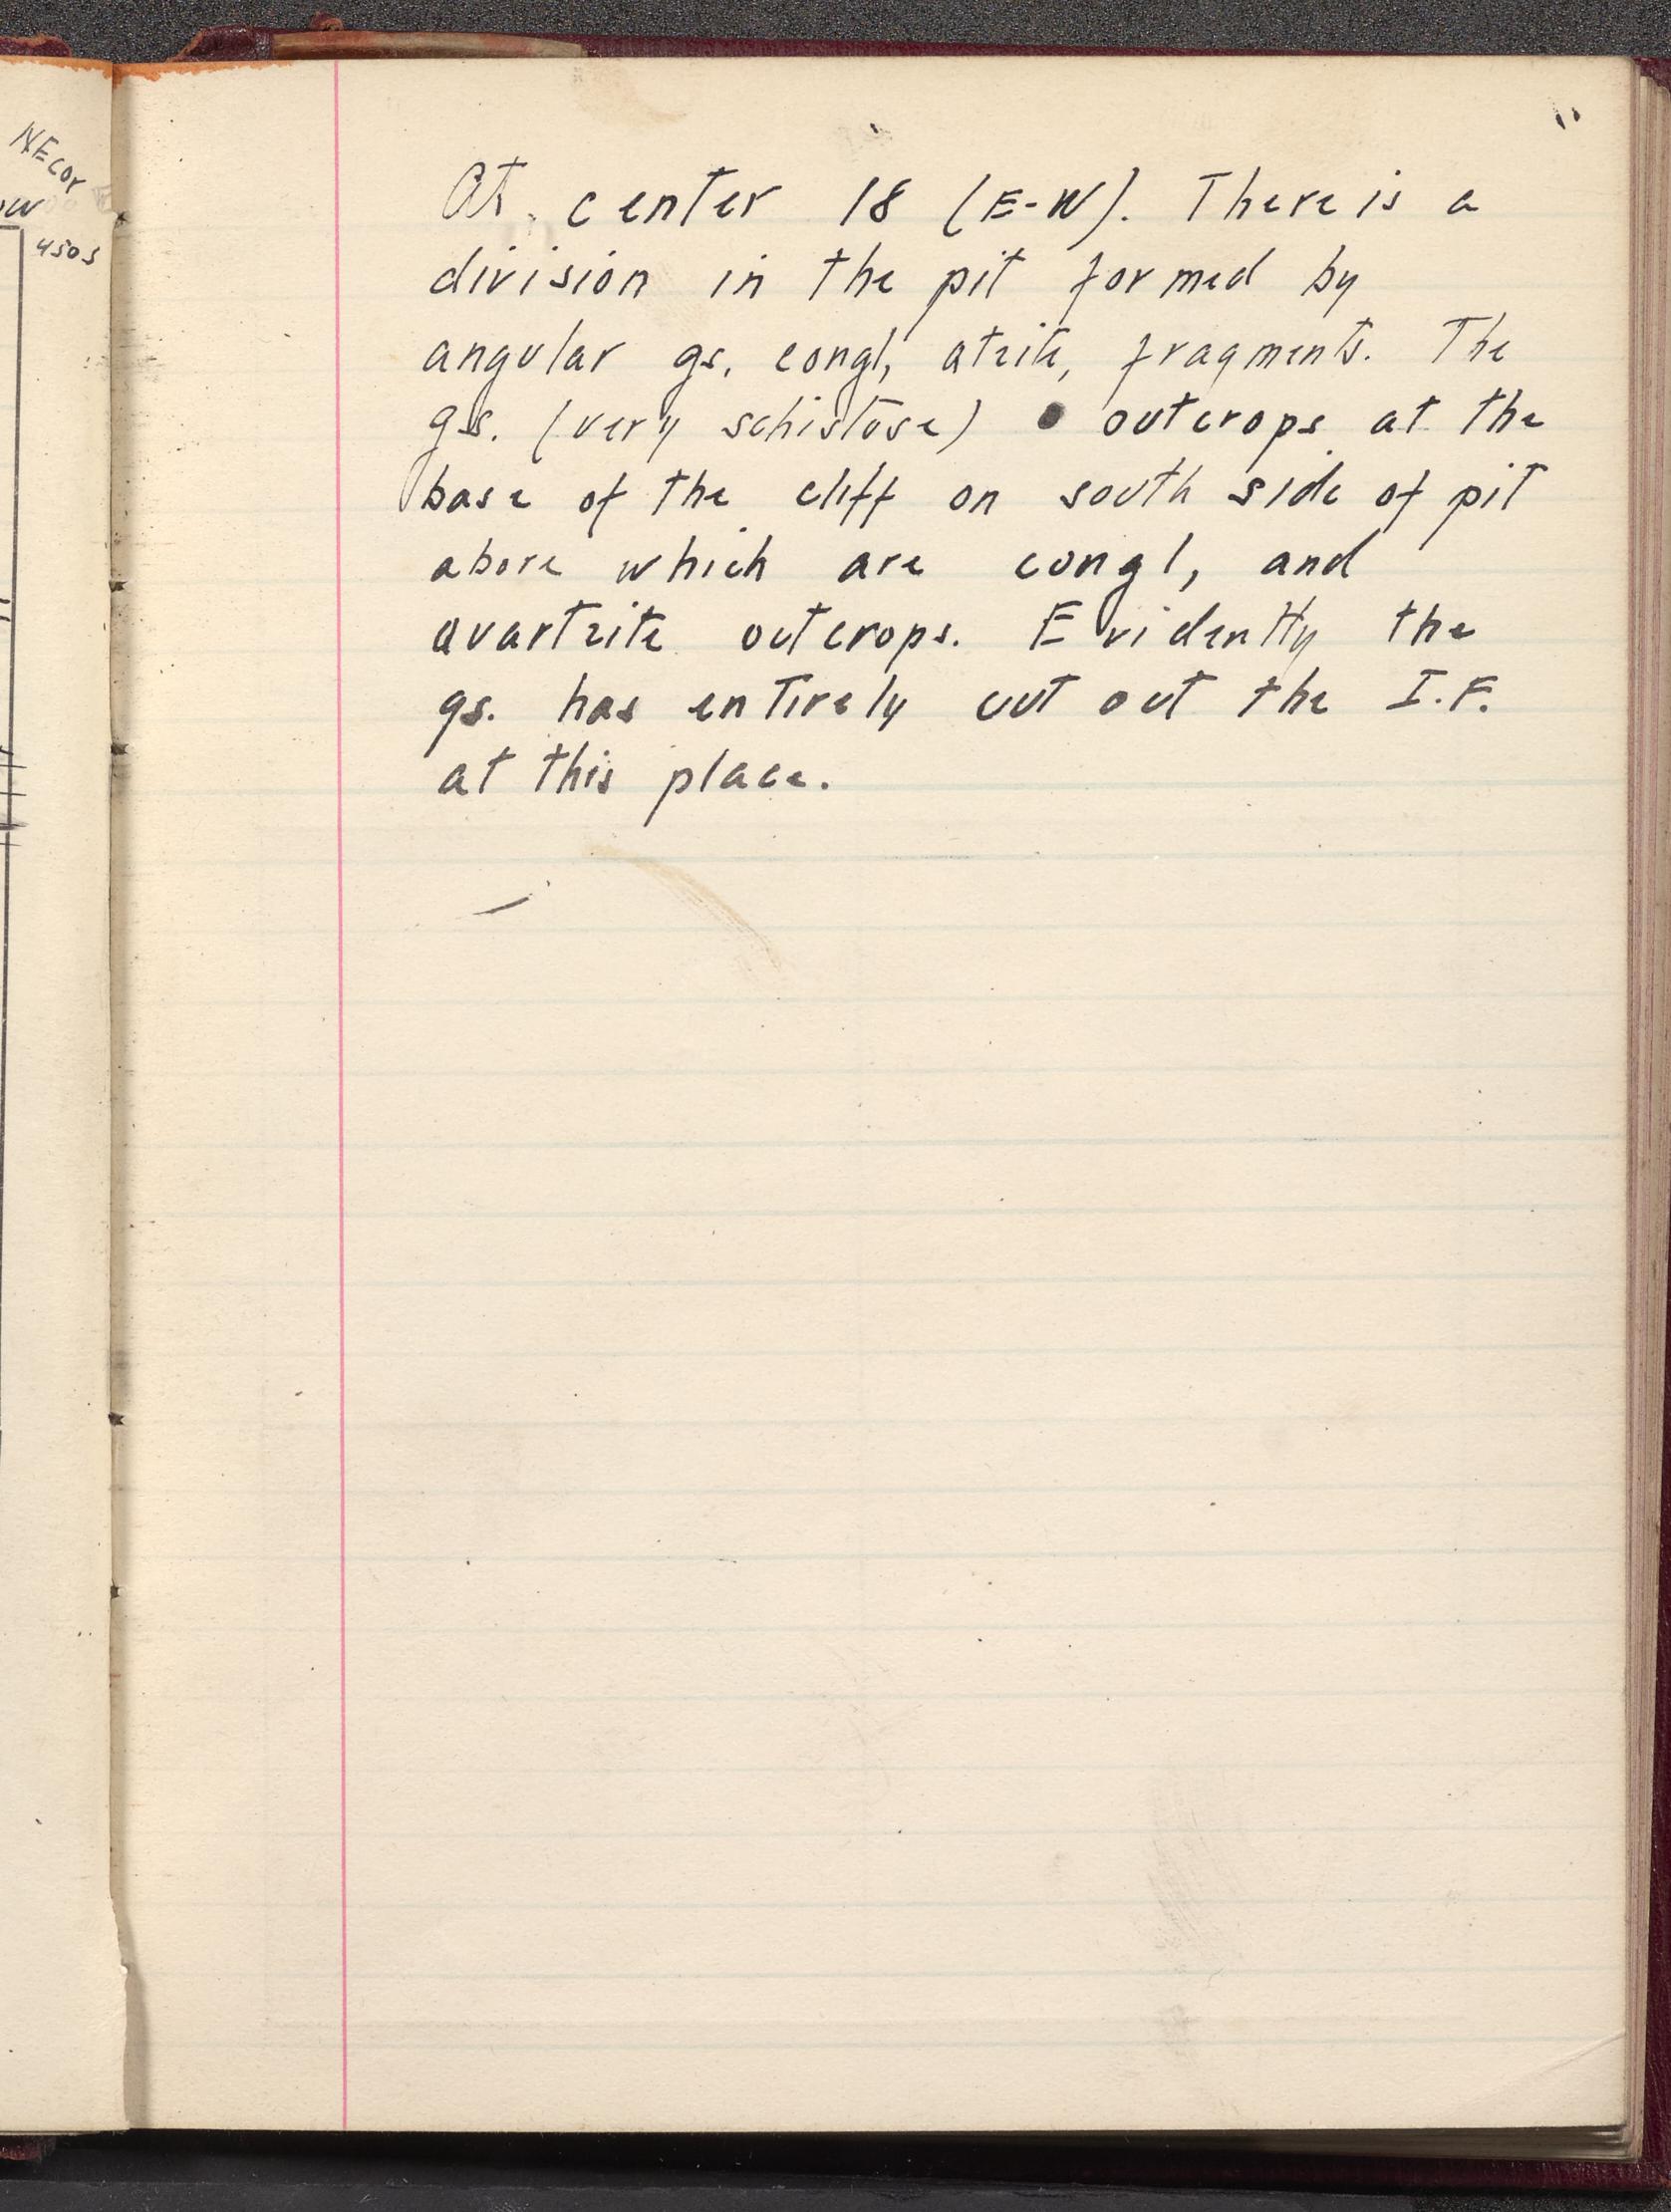 NEcor
W
450S
11
At center 18 (E-W). There is a
division in the pit formed by
angular gs. congl, qtzite, fragments. The
gs. (very schistose) outcrops at the
base of the cliff on south side of pit
above which are congl, and
quartzite outcrops. Evidently the
gs. has entirely cut out the I.F.
at this place.